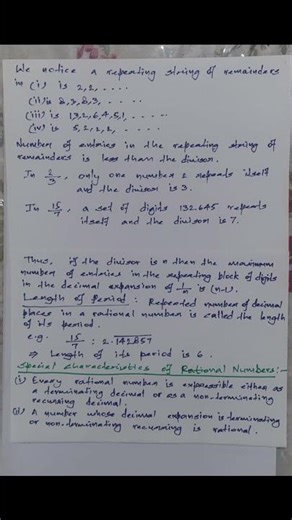 We notice a repeating string of remainders
in (i) is 2,2, ....
(ii) is 8,3,8,3, ....
(iii) is 1,3,2,6,4,5,1, .....
(iv) is 5,2,2,2, ....
Number of entries in the repeating string of
remainders is less than the divisor.
In 2/3, only one number 2 repeats itself
and the divisor is 3.
In 15/7, a set of digits 132645 repeats
itself and the divisor is 7.
Thus, if the divisor is n then the maximum
number of entries in the repeating block of digits
in the decimal expansion of 1/n is (n-1).
Length of Period : Repeated number of decimal
places in a rational number is called the length
of its period.
e.g. 15/7 : 2.142857
⇒ Length of its period is 6.
Special Characteristics of Rational Numbers:-
(i) Every rational number is expressible either as
a terminating decimal or as a non-terminating
recurring decimal.
(ii) A number whose decimal expansion is terminating
or non-terminating recurring is rational.